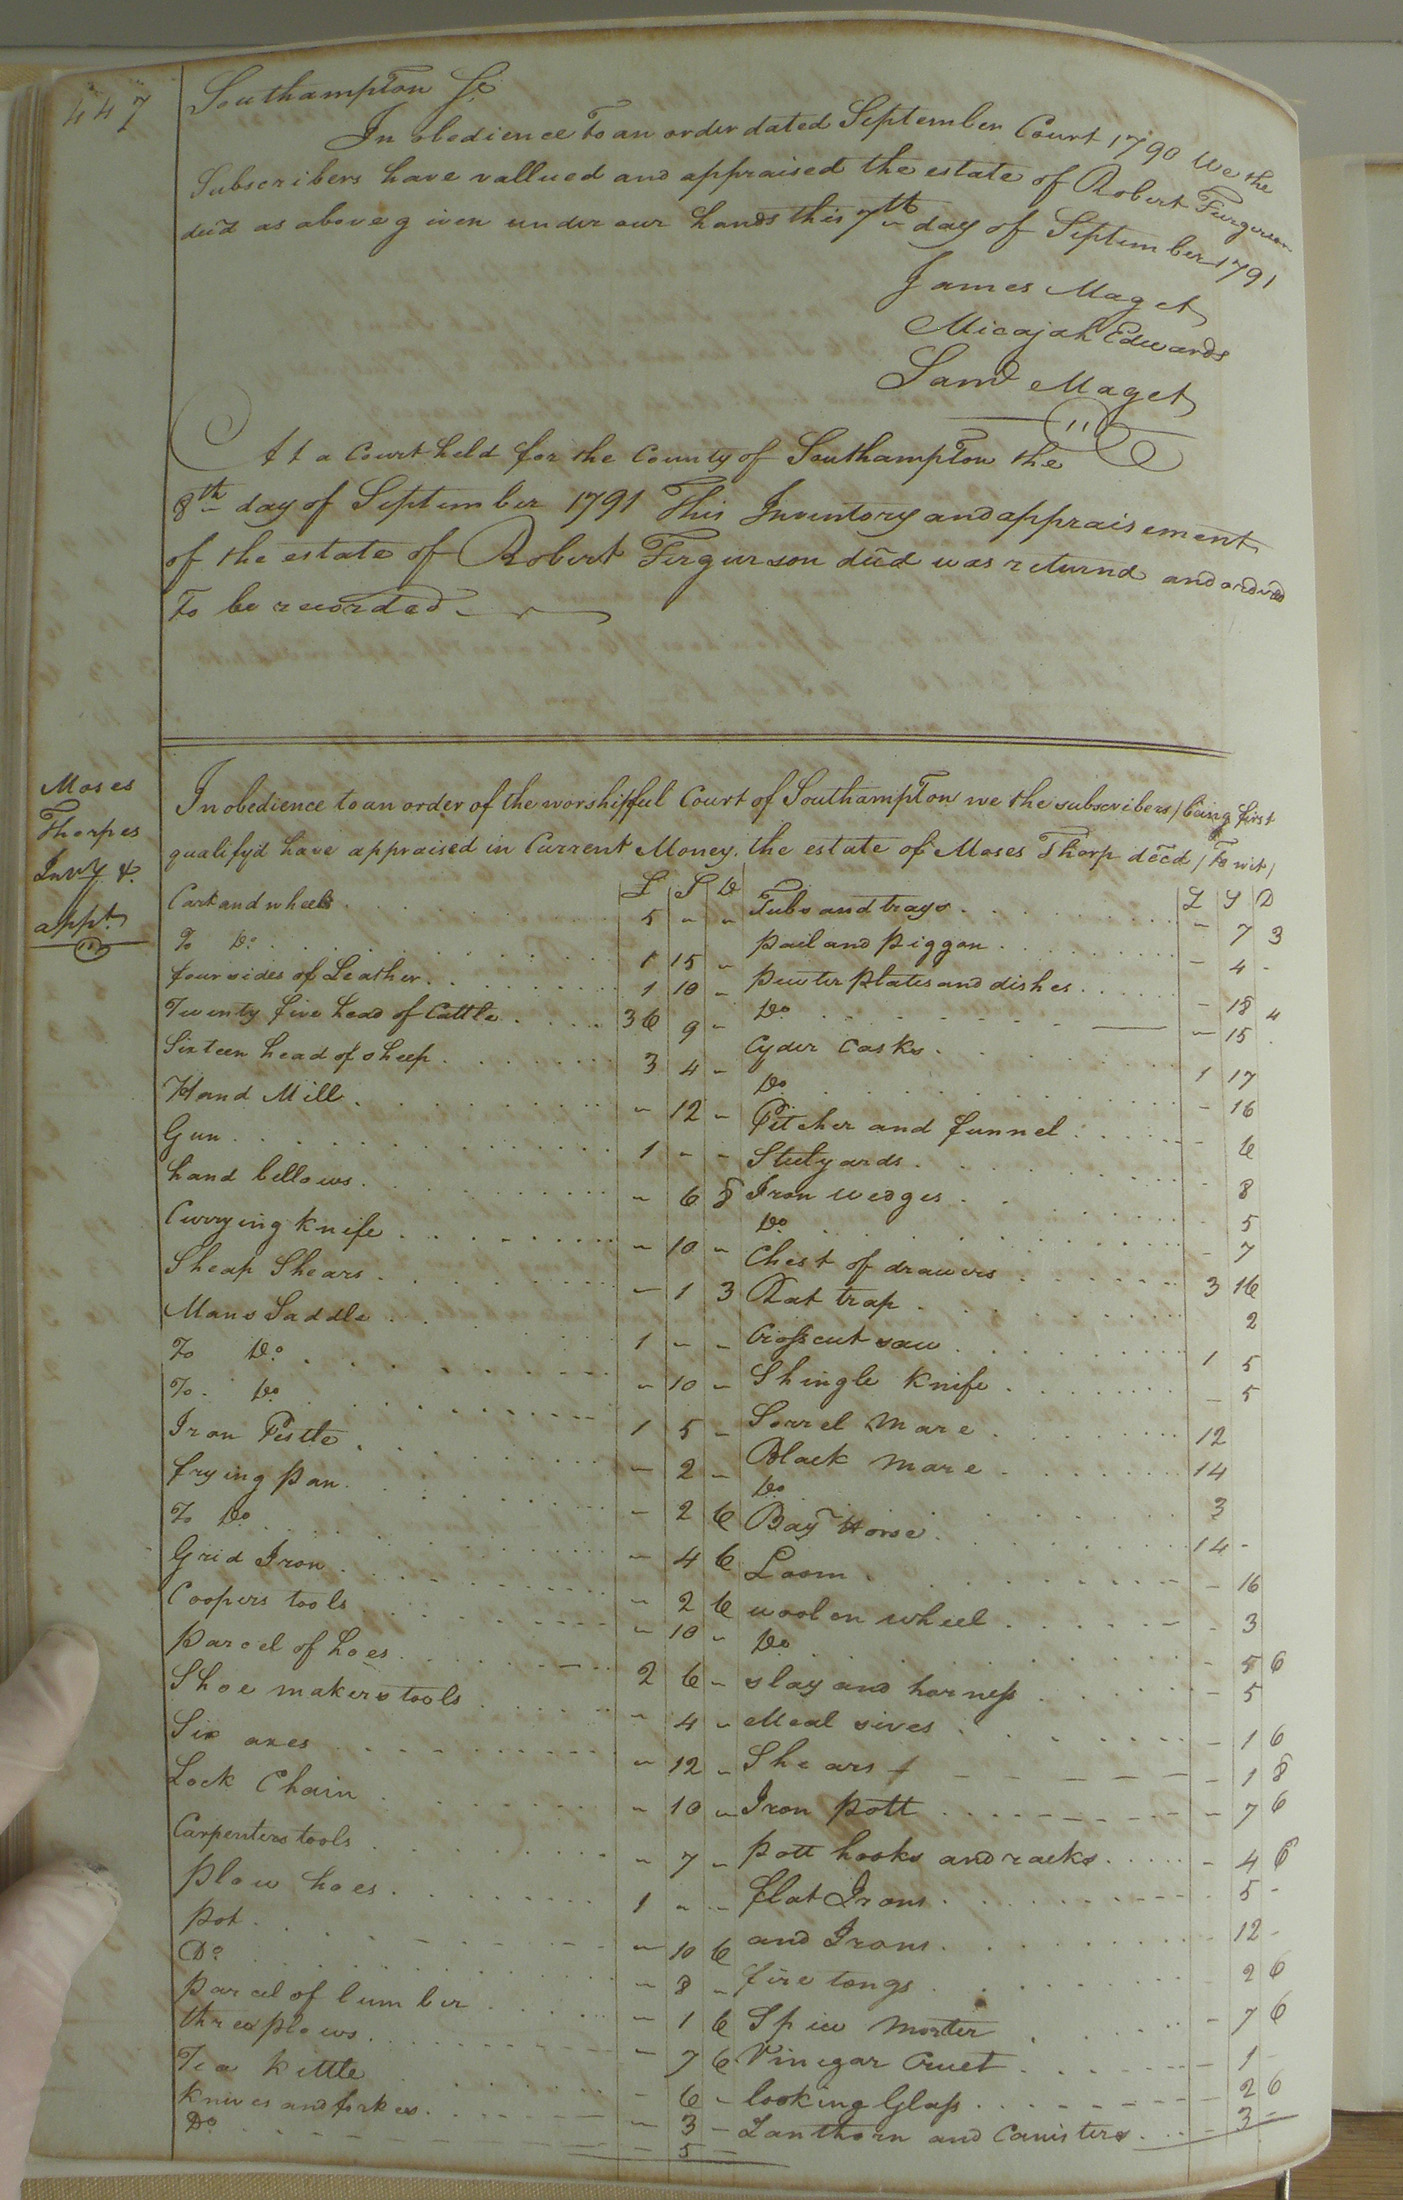 447
Southampton Sc
In obedience to an order dated September Court 1790 We the
Subscribers have vallued and appraised the estate of Robert Furgurson
decd as above given under our hands this 7th day of September 1791
James Maget
Micajah Edwards
Saml Maget
At a Court held for the County of Southampton the
8th day of September 1791 This Inventory and appraisement
of the estate of Robert Fergurson decd was returnd and ordred
to be recorded
Moses
Thorpes
Invy &
appt
In obedience to an order of the worshipful Court of Southampton we the subscribers / being first
qualifyd have appraised in Current Money. the estate of Moses Thorp decd / To wit /
£ S D
Cart and wheels 5 " "
To Do 1 15 "
four sides of Leather 1 10 "
Twenty five head of Cattle 36 9 "
Sixteen head of sheep 3 4 "
Hand Mill " 12 "
Gun 1 " "
hand bellows " 6 8
Currying knife " 10 "
Sheap Shears " 1 3
Mans Saddle 1 " "
To Do " 10 "
To Do 1 5 "
Iron Pestle " 2 "
frying pan " 2 6
To Do " 4 6
Grid Iron " 2 6
Coopers tools " 10 "
parcel of hoes 2 6 "
Shoe makers tools " 4 "
Six axes " 12 "
Lock Chain " 10 "
Carpenters tools " 7 "
plow hoes 1 " "
pot " 10 6
Do " 8 "
parcel of lumber " 1 6
three plows " 7 6
Tea kittle " 6 "
knives and forkes " 3 "
Do " 5 "
£ S D
Tubs and trays " 7 3
pail and piggon " 4 "
pewter plates and dishes " 18 4
Do " 15
Cyder Casks 1 17
Do " 16
Pitcher and funnel " 6
Stulyards " 8
Iron wedges " 5
Do " 7
Chest of drawers 3 16
Rat trap 2
Crosscut saw 1 5
Shingle knife " 5
Sorrel mare 12
Black mare 14
Do 3
Bay Horse 14 "
Loom " 16
woolen wheel " 3
Do " 5 6
slay and harness " 5
Meal sives " 1 6
Shears " 1 8
Iron pott " 7 6
pott hooks and racks " 4 6
flat Irons " 5 "
and Irons 12 "
fire tongs 2 6
Spice morter " 7 6
Vinegar Cruet " 1 "
looking Glass " 2 6
Lanthorn and Canisters " 3 "